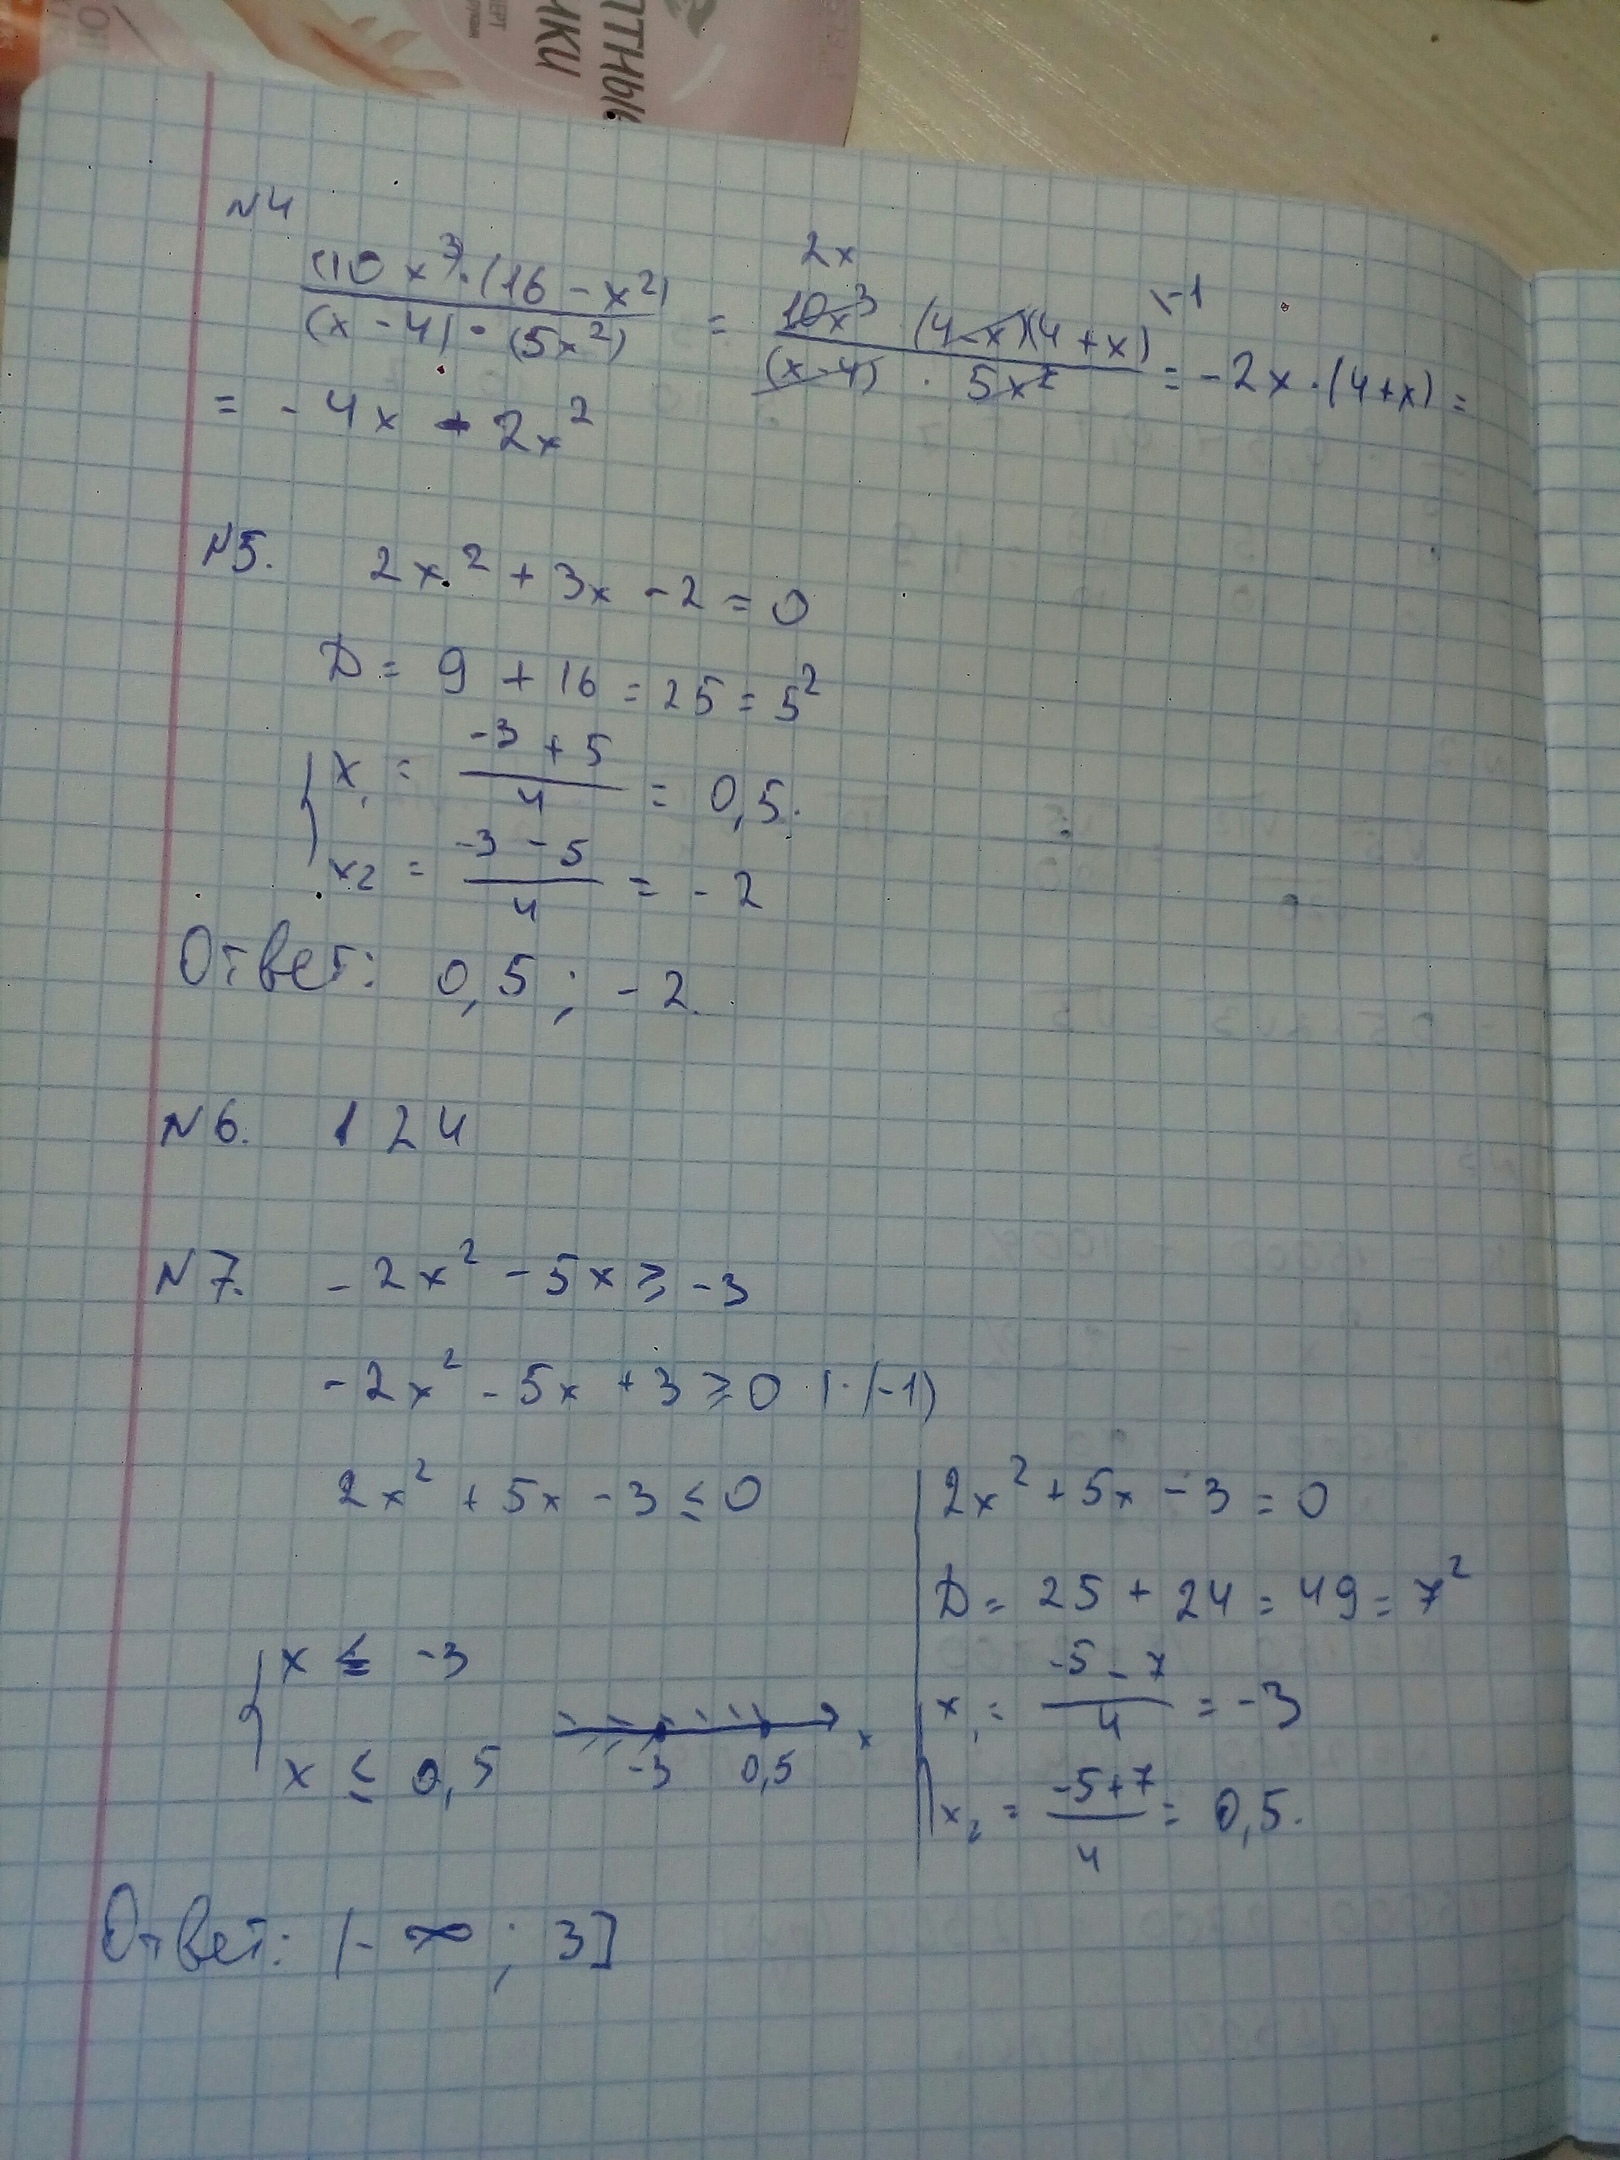 ПТНЫЕ
ИКИ
N4
(10x³)·(16-x²) / (x-4)·(5x²) = 2x 10x³ (4-x)(4+x) \-1 / (x-4) · 5x² = -2x·(4+x) =
= -4x - 2x²
N5. 2x² + 3x - 2 = 0
D = 9 + 16 = 25 = 5²
x₁ = (-3+5)/4 = 0,5.
x₂ = (-3-5)/4 = -2
Ответ: 0,5 ; -2.
N6. 124
N7. -2x² - 5x ≥ -3
-2x² - 5x + 3 ≥ 0 |·(-1)
2x² + 5x - 3 ≤ 0
{ x ≤ -3
x ≤ 0,5
-3 0,5 x
2x² + 5x - 3 = 0
D = 25 + 24 = 49 = 7²
x₁ = (-5-7)/4 = -3
x₂ = (-5+7)/4 = 0,5.
Ответ: (-∞ ; 3]